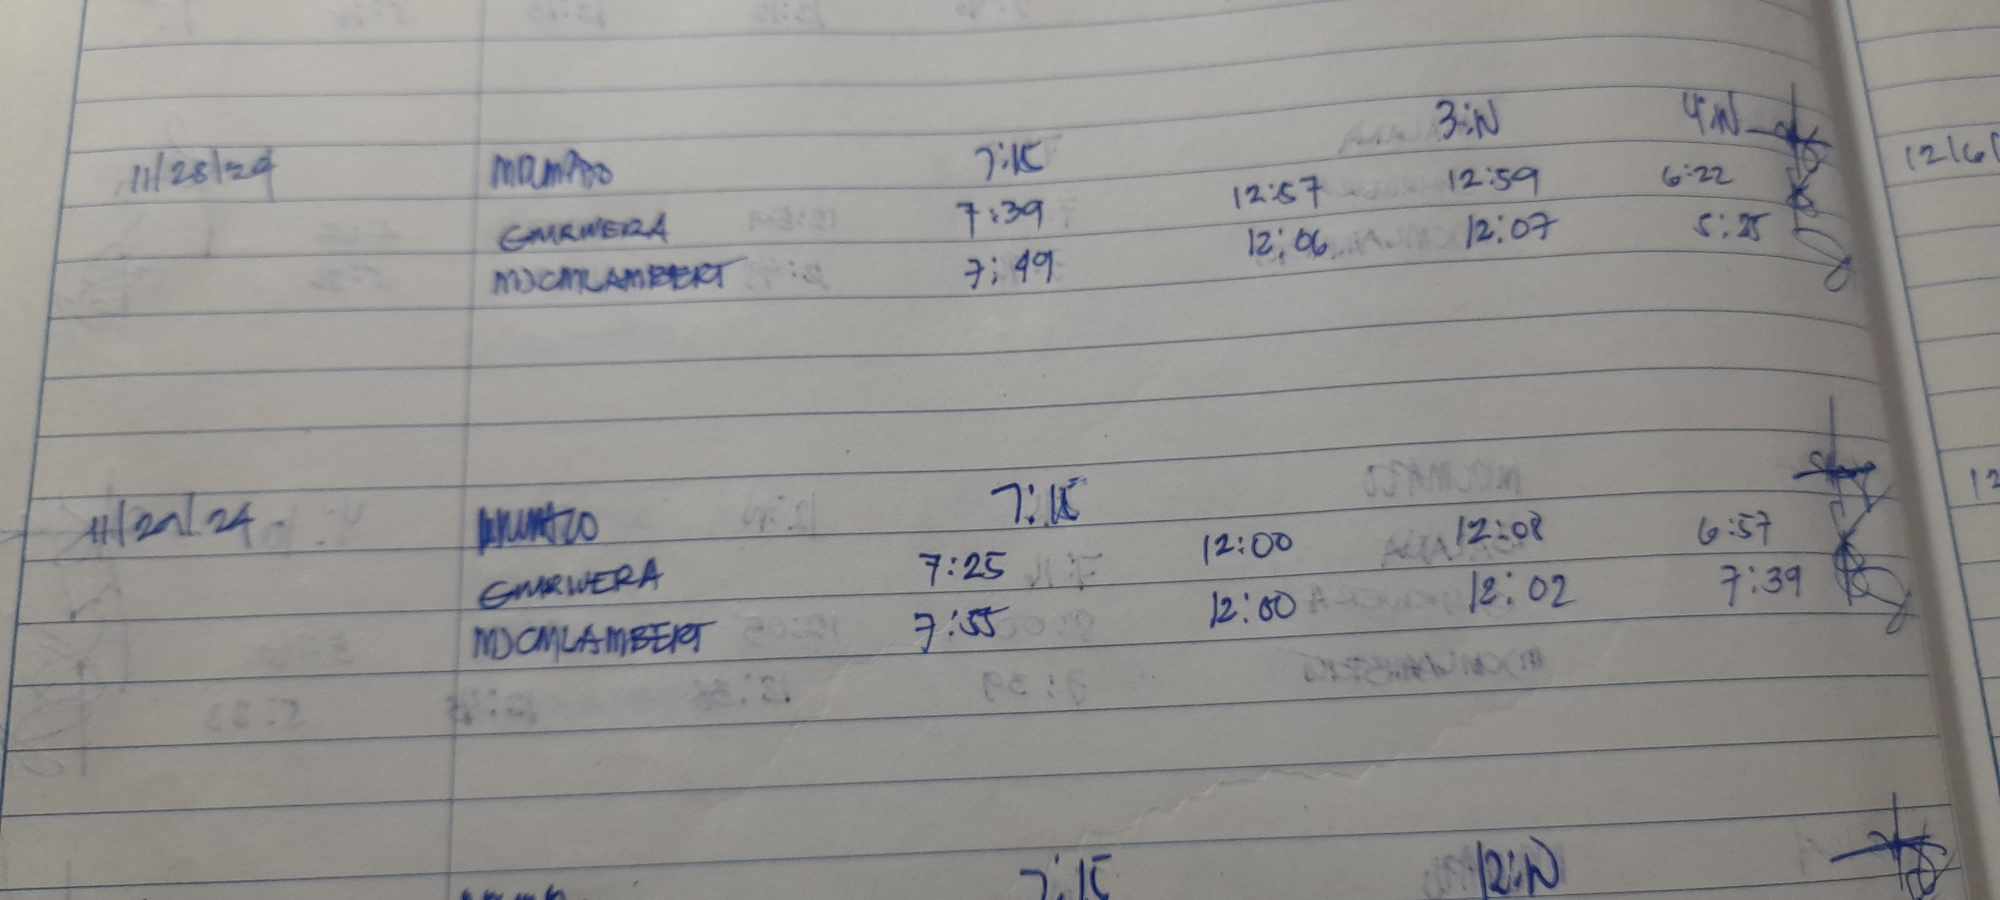 11/28/24 7:15 3:W 4:W
GMRWERA 7:39 12:57 12:59 6:22
MJCMLAMBERT 7:49 12:06 12:07 5:25
12/6/
11/29/24 7:15
GMRWERA 7:25 12:00 12:08 6:57
MJCMLAMBERT 7:55 12:00 12:02 7:39
12
7:15 12:W